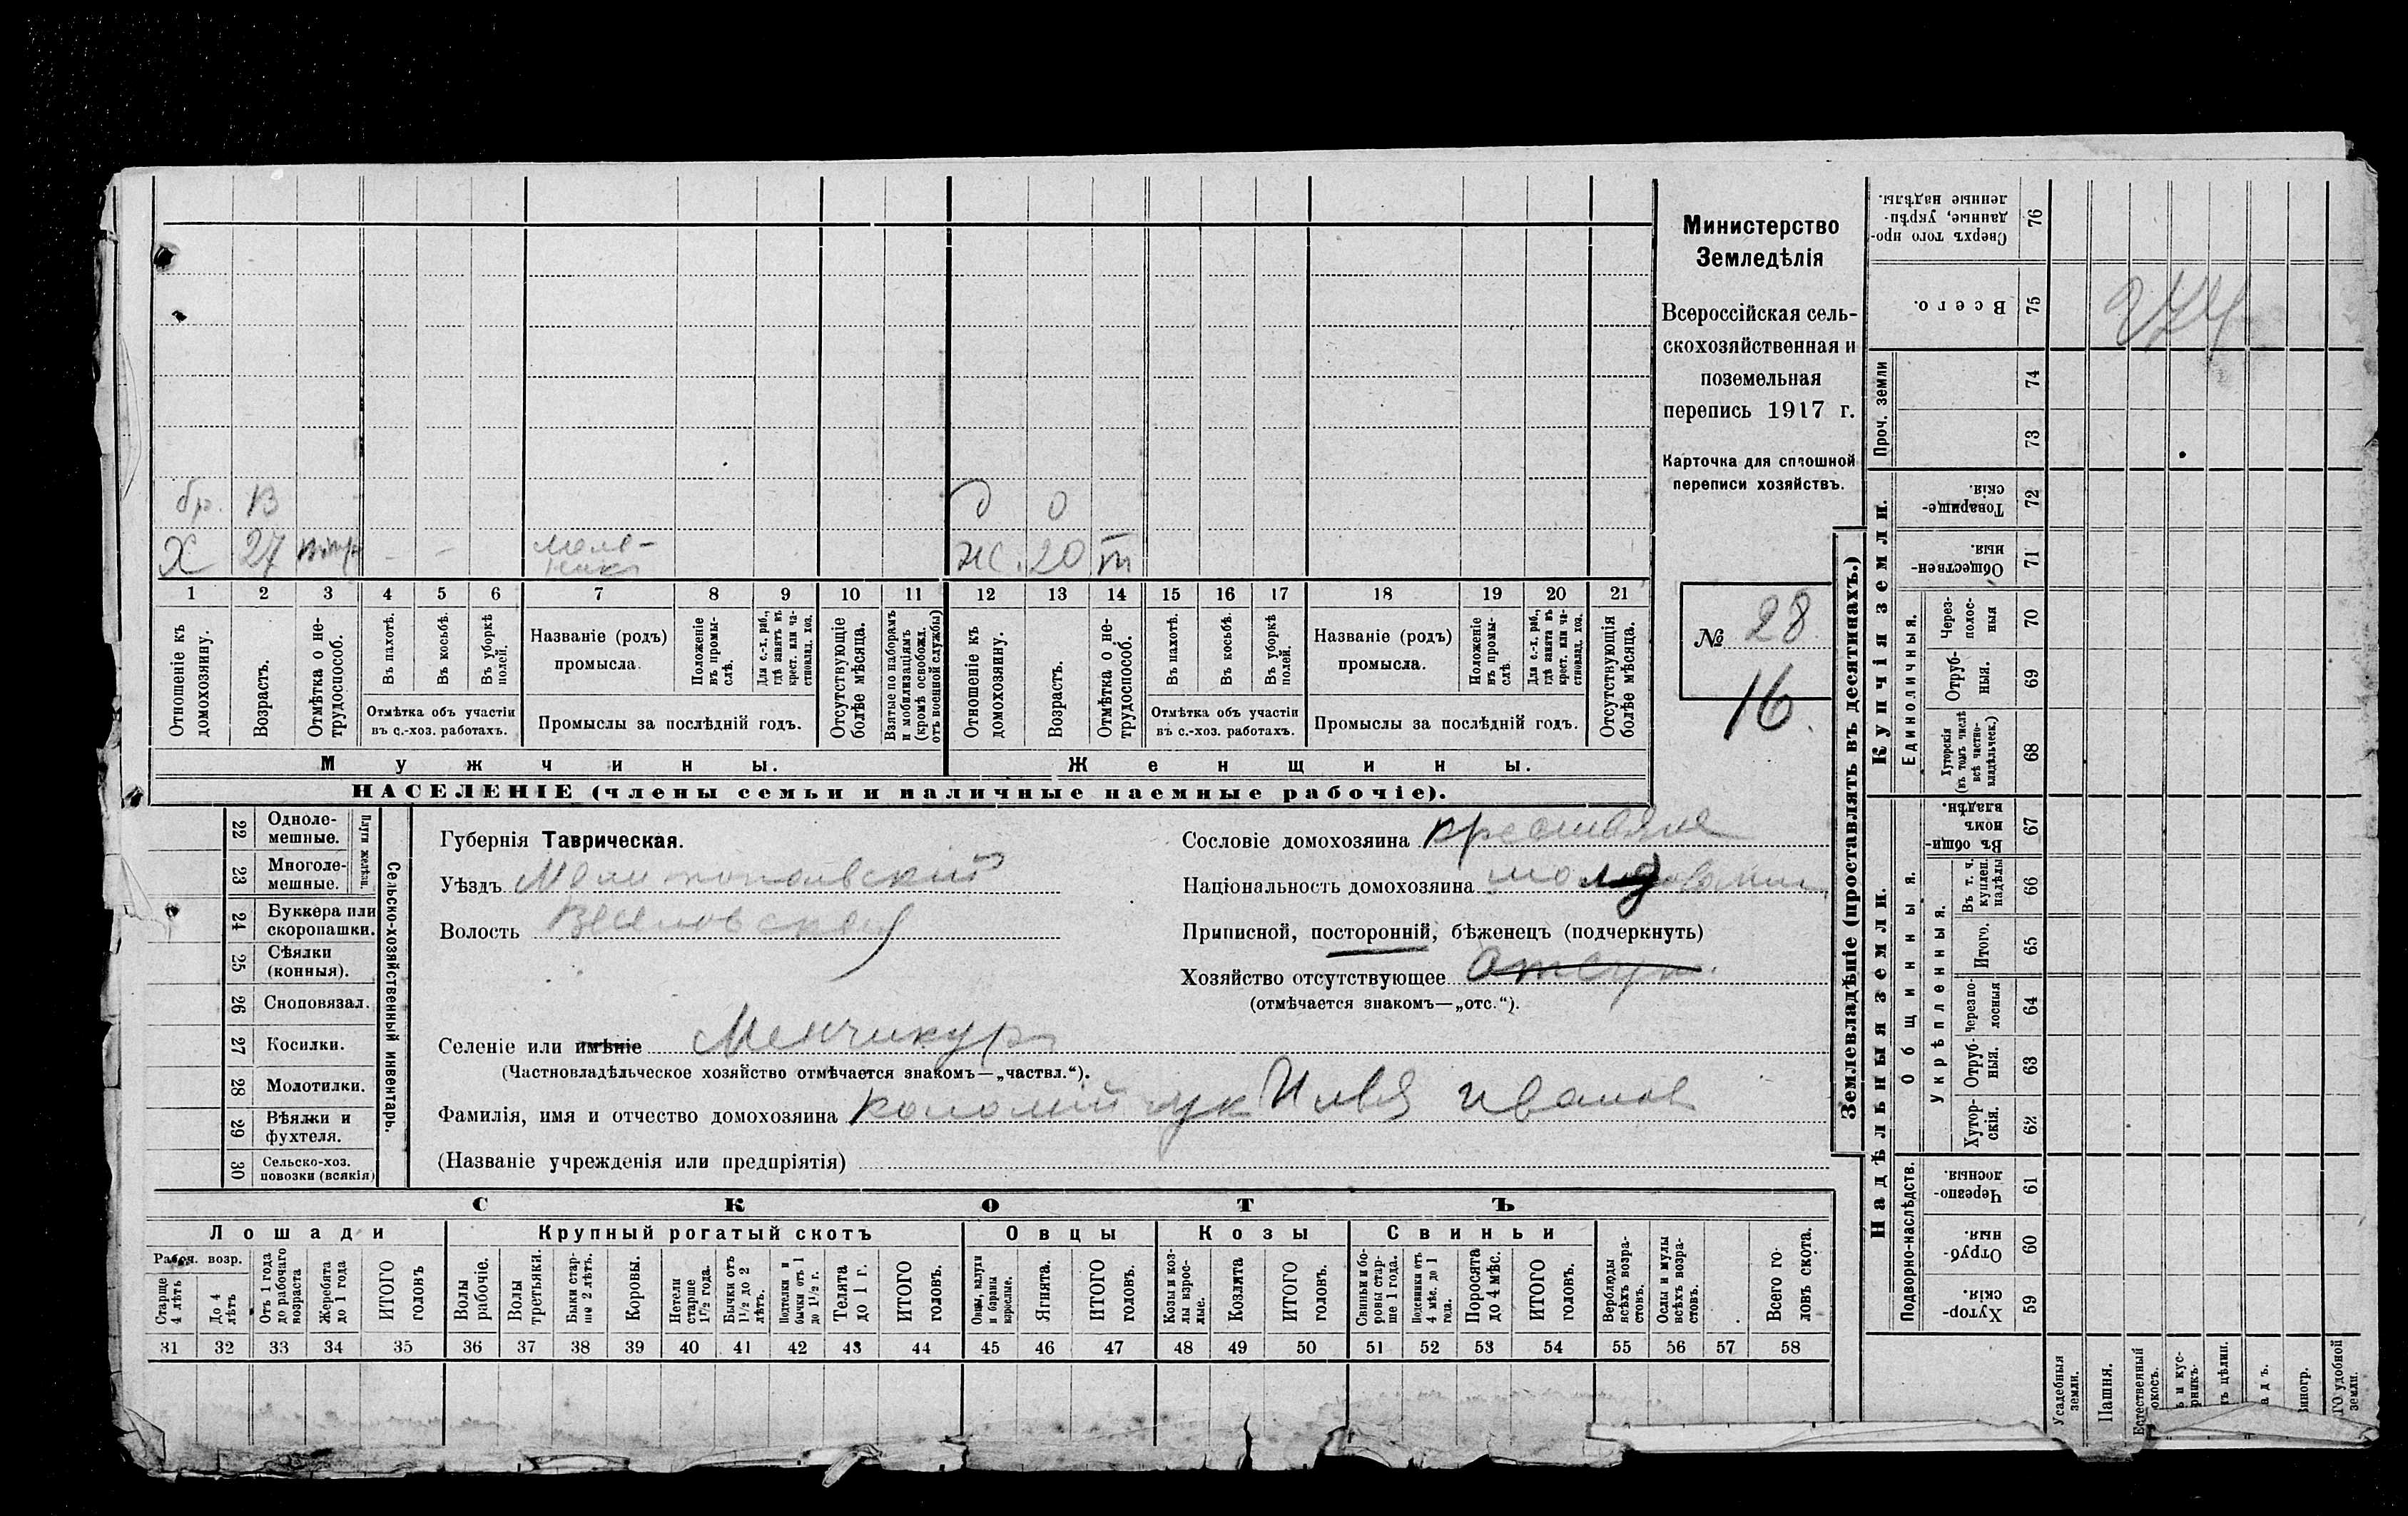 Министерство
Земледѣлія
Всероссійская сель-
скохозяйственная и
поземельная
перепись 1917 г.
Карточка для сплошной
переписи хозяйствъ.
№ 28
16.
бр. 13
Х 27 – – мель-
никъ
д 0
ж. 20 т
1 2 3 4 5 6 7 8 9 10 11 12 13 14 15 16 17 18 19 20 21
Отношеніе къ домохозяину.
Возрастъ.
Отмѣтка о не-трудоспособ.
Въ пахотѣ.
Въ косьбѣ.
Въ уборкѣ полей.
Отмѣтка объ участіи
въ с.-хоз. работахъ.
Названіе (родъ)
промысла.
Положеніе въ промы-слѣ.
Для с.-х. раб., гдѣ занятъ въ крест. или ча-стновлад. хоз.
Промыслы за послѣдній годъ.
Отсутствующіе болѣе мѣсяца.
Взятые по наборамъ и мобилизаціямъ (кромѣ освобожд. отъ военной службы)
Отношеніе къ домохозяину.
Возрастъ.
Отмѣтка о не-трудоспособ.
Въ пахотѣ.
Въ косьбѣ.
Въ уборкѣ полей.
Отмѣтка объ участіи
въ с.-хоз. работахъ.
Названіе (родъ)
промысла.
Положеніе въ промы-слѣ.
Для с.-х. раб., гдѣ занята въ крест. или ча-стновлад. хоз.
Промыслы за послѣдній годъ.
Отсутствующія болѣе мѣсяца.
Мужчины.
Женщины.
НАСЕЛЕНІЕ (члены семьи и наличные наемные рабочіе).
22 Одноле-мешные.
23 Многоле-мешные.
Плуги желѣзн.
24 Буккера или скоропашки.
25 Сѣялки (конныя).
26 Сноповязал.
27 Косилки.
28 Молотилки.
29 Вѣялки и фухтеля.
30 Сельско-хоз. повозки (всякія)
Сельско-хозяйственный инвентарь.
Губернія Таврическая.
Уѣздъ Мелитопольскій
Волость Веселовская
Сословіе домохозяина крестьяне
Національность домохозяина
Приписной, посторонній, бѣженецъ (подчеркнуть)
Хозяйство отсутствующее отсут.
(отмѣчается знакомъ—„отс.“).
Селеніе или имѣніе Менчикуръ
(Частновладѣльческое хозяйство отмѣчается знакомъ—„частвл.“).
Фамилія, имя и отчество домохозяина Коломійчук Илья Иванов
(Названіе учрежденія или предпріятія)
СКОТЪ
Лошади
Крупный рогатый скотъ
Овцы
Козы
Свиньи
Рабоч. возр.
Старше 4 лѣтъ
До 4 лѣтъ
Отъ 1 года до рабочаго возраста
Жеребята до 1 года
ИТОГО головъ
Волы рабочіе.
Волы третьяки.
Быки стар-ше 2 лѣтъ.
Коровы.
Нетели старше 1 1/2 года.
Бычки отъ 1 1/2 до 2 лѣтъ.
Подтелки и бычки отъ 1 до 1 1/2 г.
Телята до 1 г.
ИТОГО головъ.
Овцы, валухи и бараны взрослые.
Ягнята.
ИТОГО головъ.
Козы и коз-лы взрос-лые.
Козлята
ИТОГО головъ.
Свиньи и бо-ровы стар-ше 1 года.
Подсвинки отъ 4 мѣс. до 1 года.
Поросята до 4 мѣс.
ИТОГО головъ.
Верблюды всѣхъ возра-стовъ.
Ослы и мулы всѣхъ возра-стовъ.
Всего го-ловъ скота.
31 32 33 34 35 36 37 38 39 40 41 42 43 44 45 46 47 48 49 50 51 52 53 54 55 56 57 58
Землевладѣніе (проставлять въ десятинахъ.)
Сверхъ того про-данные, укрѣп-ленные надѣлы. 76
Всего. 75
Проч. земли
74
73
Купчія земли.
Товарище-скія. 72
Обществен-ныя. 71
Единоличныя.
Через-полос-ныя 70
Отруб-ныя. 69
Хуторскія (въ томъ числѣ всѣ частно-владѣльческ.) 68
Надѣльныя земли.
Общинныя.
Въ общи-номъ владѣн. 67
Укрѣпленныя.
Въ т. ч. куплен. надѣлы 66
Итого. 65
Черезпо-лосныя 64
Отруб-ныя. 63
Хутор-скія. 62
Подворно-наслѣдств.
Черезпо-лосныя. 61
Отруб-ныя. 60
Хутор-скія. 59
Усадебныя земли.
Пашня.
Естественный
удобной земли.